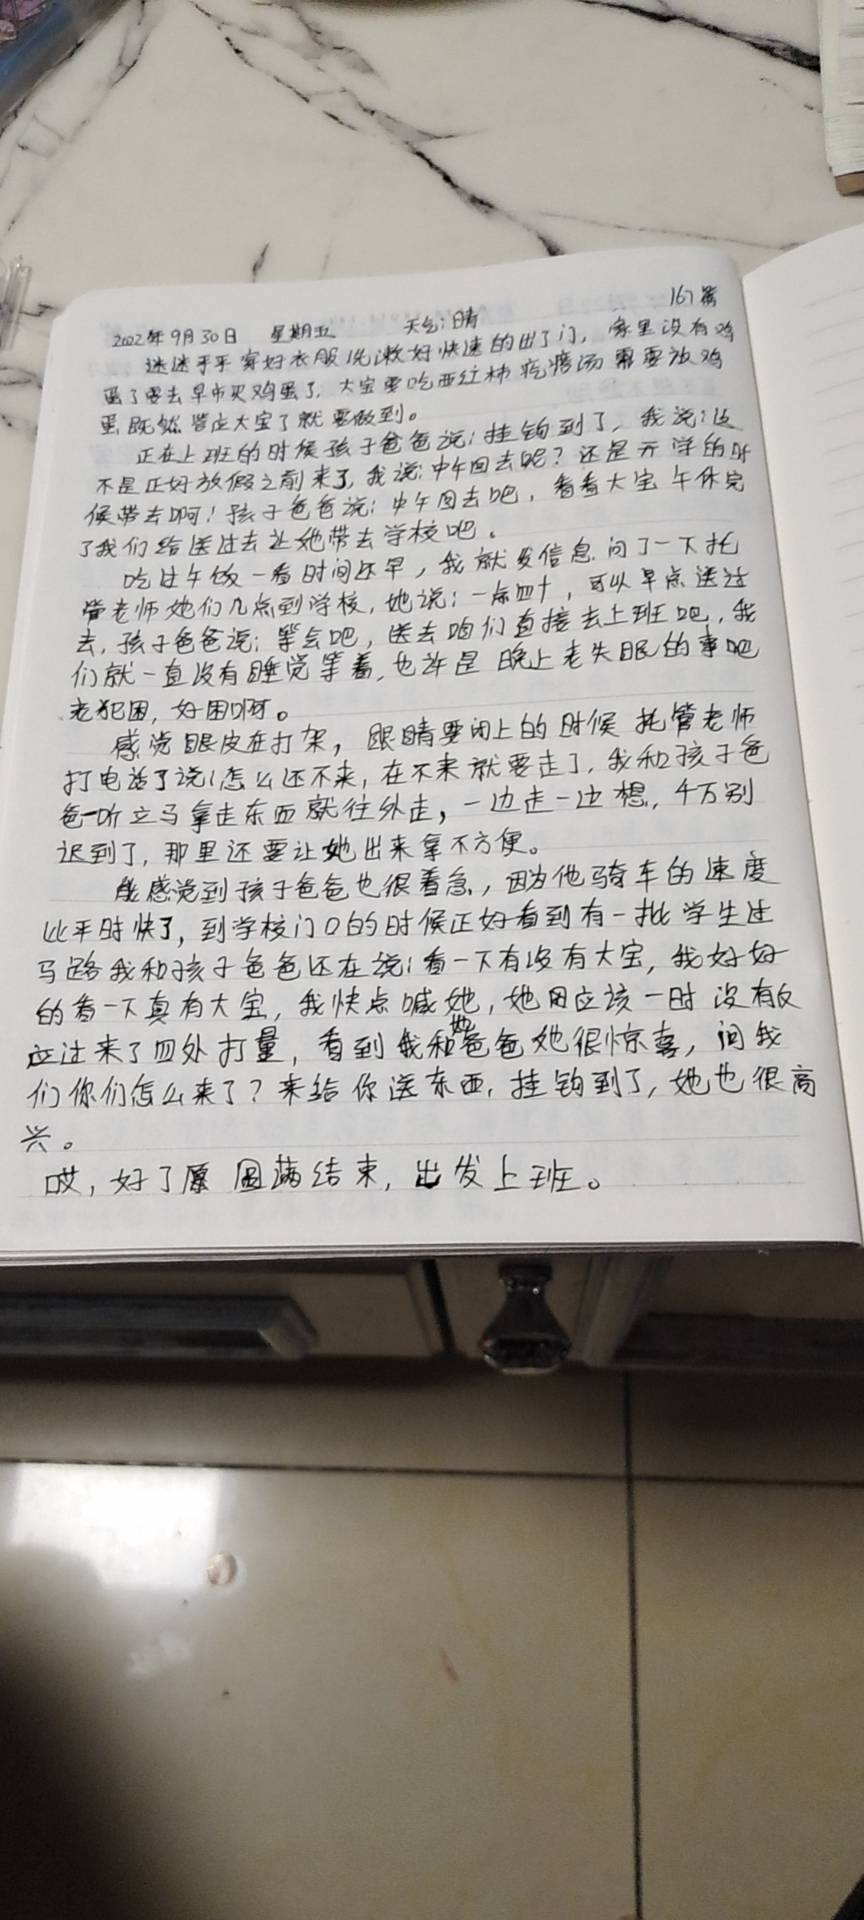 167篇
2022年9月30日 星期五 天气:晴
迷迷乎乎穿好衣服洗漱好快速的出了门,家里没有鸡
蛋了要去早市买鸡蛋了,大宝要吃西红柿疙瘩汤需要放鸡
蛋,既然答应大宝了就要做到。
正在上班的时候孩子爸爸说:挂钩到了,我说:这
不是正好放假之前来了,我说:中午回去呢?还是开学的时
候带去啊!孩子爸爸说:中午回去吧,看看大宝午休完
了我们给送过去让她带去学校吧。
吃过午饭一看时间还早,我就发信息问了一下托
管老师她们几点到学校,她说:一点四十,可以早点送过
去,孩子爸爸说:等会吧,送去咱们直接去上班吧,我
们就一直没有睡觉等着,也许是晚上老失眠的事吧
老犯困,好困啊。
感觉眼皮在打架,眼睛要闭上的时候托管老师
打电话了说:怎么还不来,在不来就要走了,我和孩子爸
爸一听立马拿走东西就往外走,一边走一边想,千万别
迟到了,那里还要让她出来拿不方便。
能感觉到孩子爸爸也很着急,因为他骑车的速度
比平时快了,到学校门口的时候正好看到有一批学生过
马路我和孩子爸爸还在说:看一下有没有大宝,我好好
的看一下真有大宝,我快点喊她,她因应该一时没有反
应过来了四处打量,看到我和她爸爸她很惊喜,问我
们你们怎么来了?来给你送东西,挂钩到了,她也很高
兴。
哎,好了 圆满结束,出发上班。